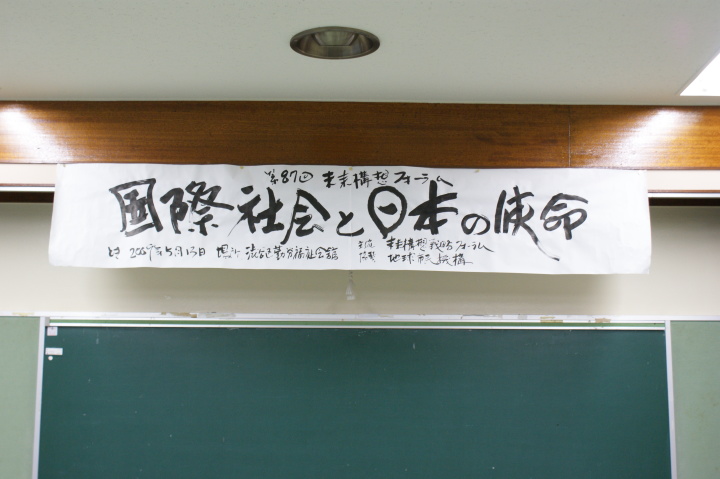 第87回 未来構想フォーラム
国際社会と日本の使命
とき 2009年5月13日 場所 渋谷区勤労福祉会館
主催 未来構想戦略フォーラム
協賛 地球市民機構